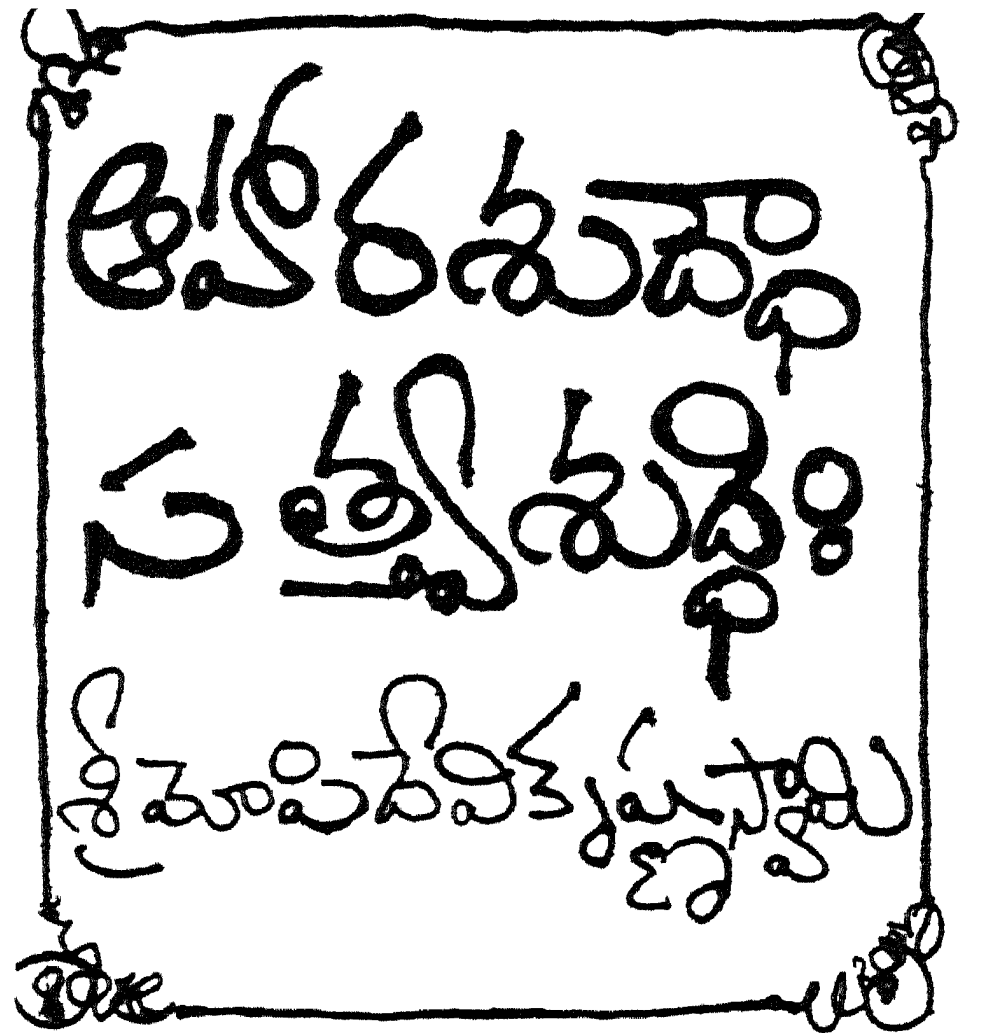 ఆహారశుద్ధా
సత్త్వశుద్ధిః
శ్రీమోపిదేవికృష్ణస్వామి